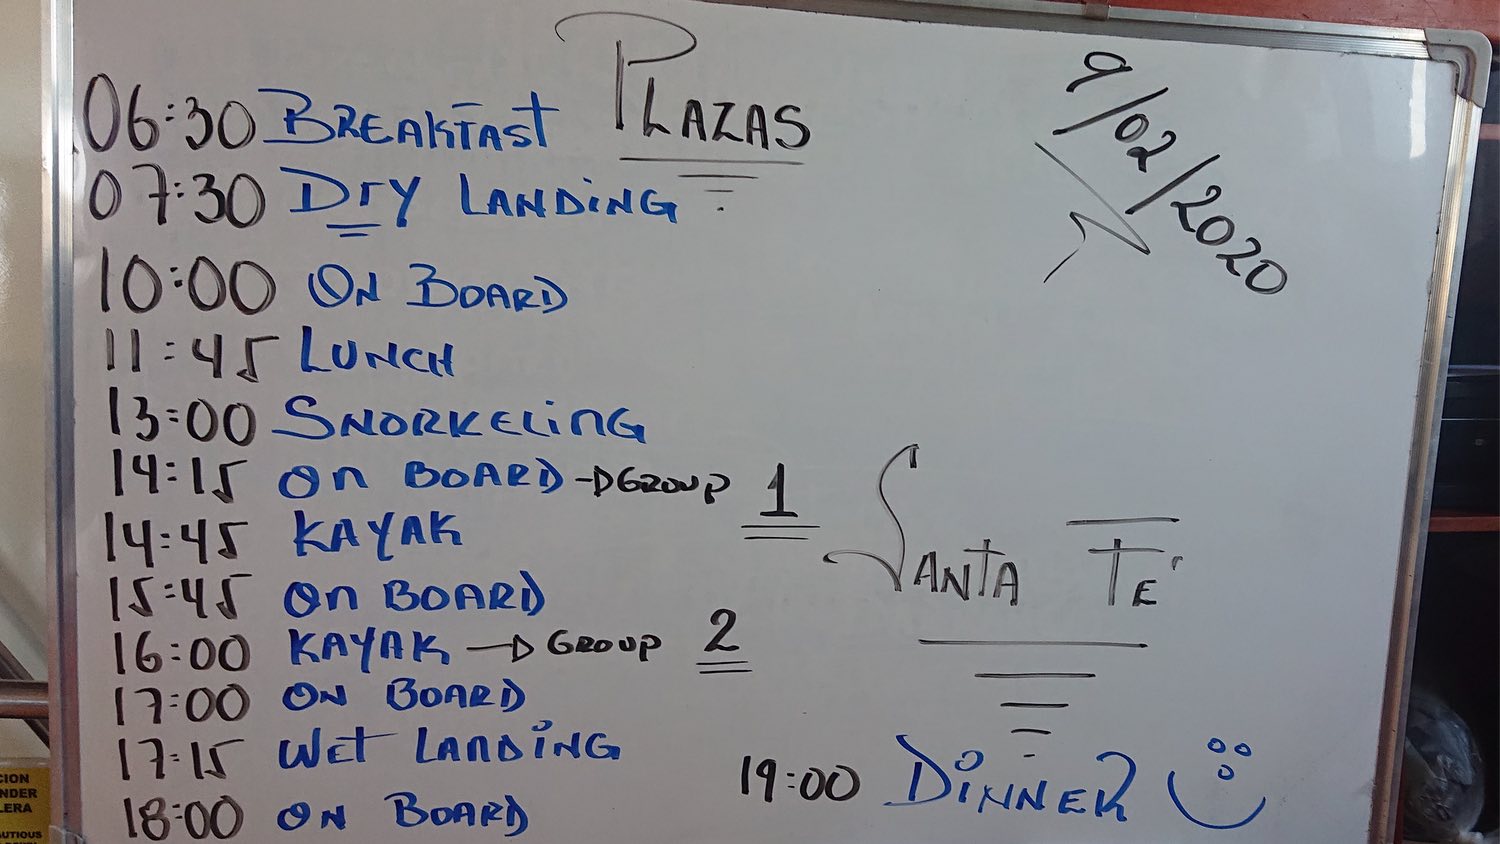 PLAZAS
9/02/2020
06:30 BREAKFAST
07:30 Dry LANDING
10:00 ON BOARD
11:45 LUNCH
13:00 SNORKELING
14:15 ON BOARD → GROUP 1
14:45 KAYAK
SANTA FÉ
15:45 ON BOARD
16:00 KAYAK → GROUP 2
17:00 ON BOARD
17:15 WET LANDING
18:00 ON BOARD
19:00 DINNER
CION
NDER
LERA
UTIOUS